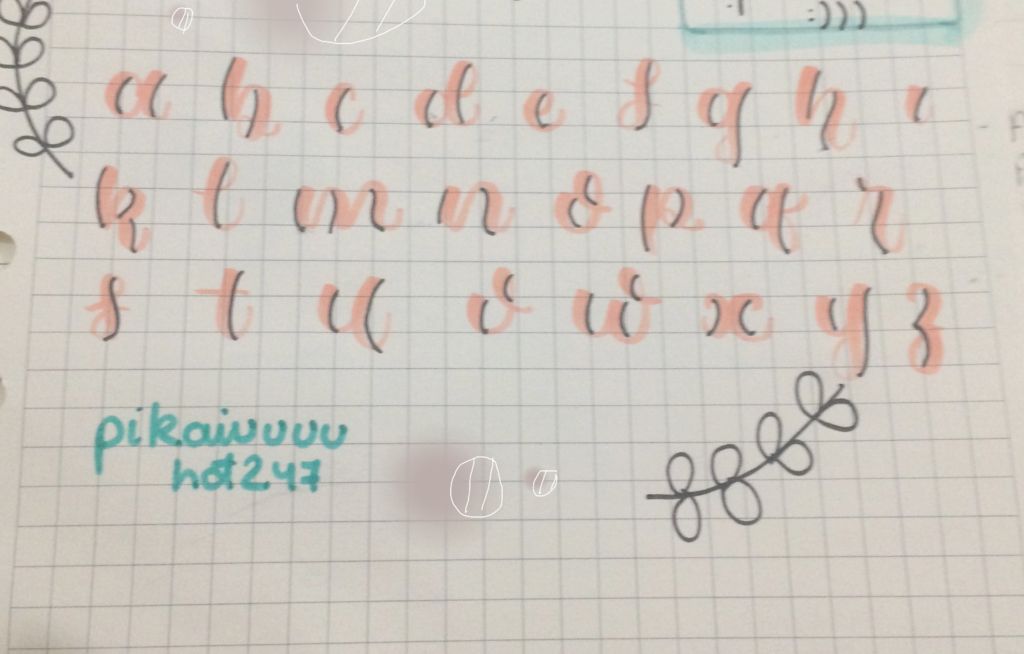 :)))
a b c d e f g h i
k l m n o p q r
s t u v w x y z
pikaiuuuu
hot247